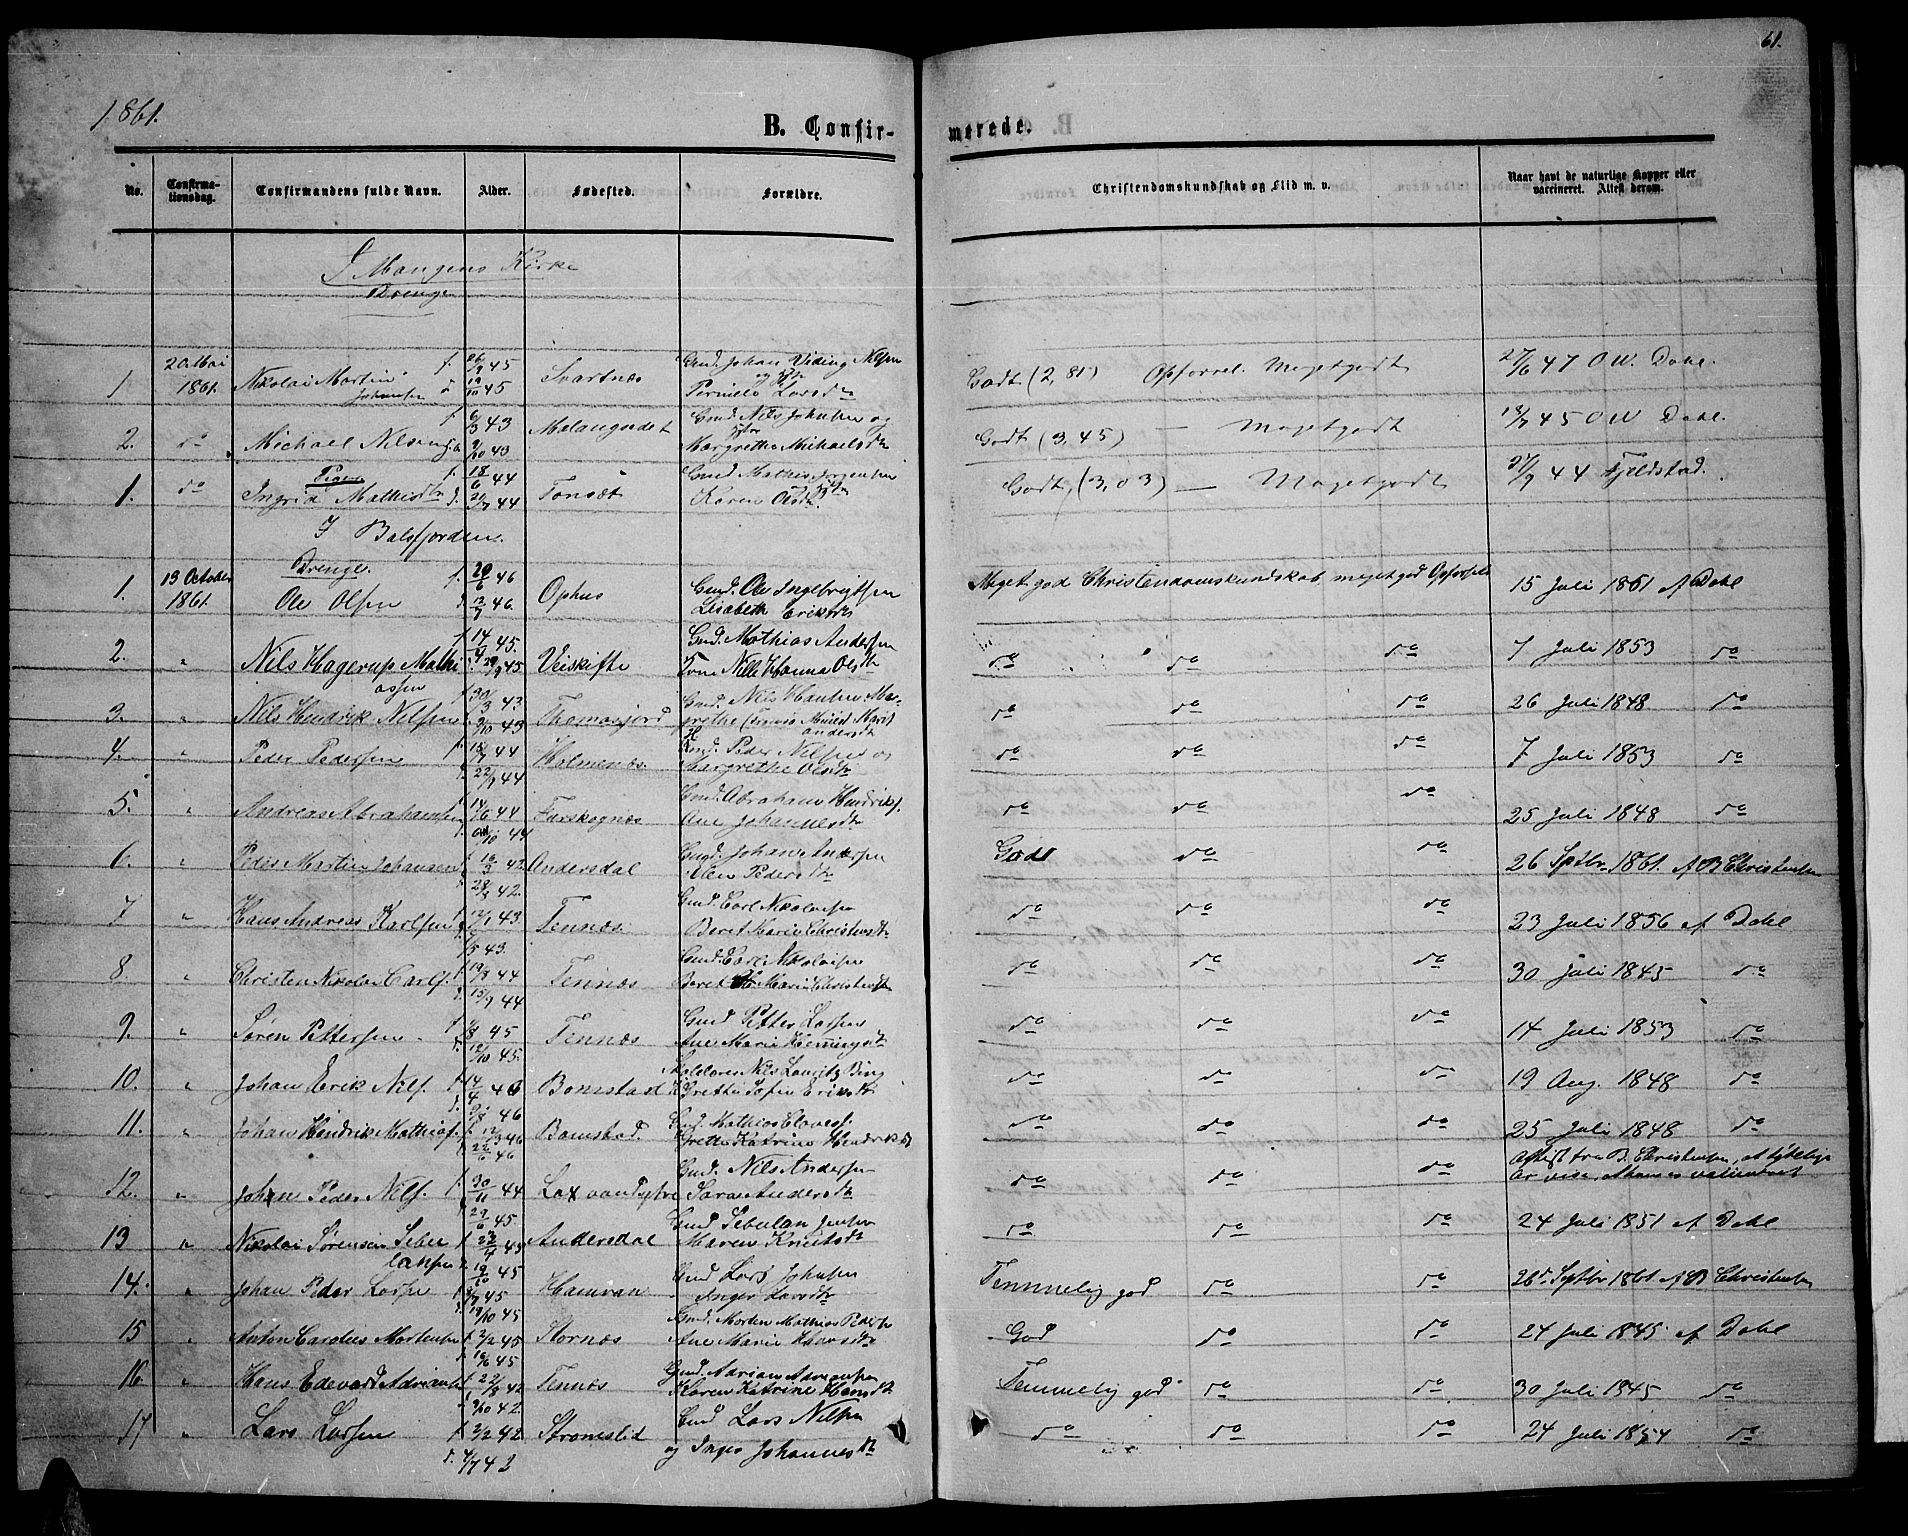 61.
1861.
B. Confir-
merede.
No.
Confirma-
tionsdag.
Confirmandens fulde Navn.
Alder.
Fødested.
Forældre.
Christendomskundskab og Flid m. v.
Naar havt de naturlige Kopper eller
vaccineret. Attest derom.
I Mangens Kirke
Drenge
1 20 Mai 1861. Nikolai Martin Johansen f. 26/9 45 d 19/10 45 Svartnæs Gmd. Johan Viding Nilsen og Pernele Larsdr Godt (2,81) Opførsel Megetgodt 27/6 47 O W. Dahl.
2. do Michael Nilsen f. 6/3 43 9/10 43 Malangseidet Gmd. Nils Johnsen og Hstr Margrethe Michaelsdr Godt (3,45) — Megetgodt 13/7 45 O W Dahl.
Pigen
1. do Ingrid Mathisdr f. 18/6 44 d. 21/7 44 Tonsæt Gmd. Mathis Jørgensen Karen Olsdr. Godt, (3,03) — Megetgodt 27/9 44 Fjeldstad.
I Balsfjorden
Drenge.
1. 13 October 1861. Ole Olsen f. 20/6 46 d. 12/7 46. Ophus Gmd. Ole Ingebrigtsen Lisabeth Eriksdr Meget god Christendomskundskab meget god Opførsel 15 Juli 1861 af Dahl
2. " Nils Hagerup Mathiassen f. 14/4 45. 29/9 45 Veiskifte Gmd. Mathias Andersen Kone Nille Hanna Olsdr do do do 7 Juli 1853 do
3. " Nils Hendrik Nilsen f. 30/3 43. 3/10 43 Thomasjord Gmd. Nils Hansen Margrethe Marit Andersdr do do do 26 Juli 1848 do
4. " Peder Pedersen f. 15/7 44 d. 22/9 44 Holmenæs. Gmd. Peder Nilsen og Margrethe Olsdr do do do 7 Juli 1853 do
5. " Andreas Abrahamsen f. 14/6 44 /10 44 Furskognæs Gmd. Abrahams Hendriks. Ane Johannesdr do do do 25 Juli 1848 do
6. " Peder Martin Johansen f. 19/3 42 28/3 42. Andersdal Gmd. Johan Andersen Elen Pedersdr God do do 26 Septbr. 1861. af B Christensen
7 " Hans Andreas Karlsen f. 12/1 43. /5 43. Tennæs Gmd. Carl Nikolaisen Beret Marie Christensdr do do do 23 Juli 1856 af Dahl
8. " Christen Nikolai Carls. f. 19/8 44 d. 15/9 44 Tennæs Gmd. Carl Nikolaisen Beret Marie Christensdr do do do 30 Juli 1845 do
9. " Søren Pettersen f. /8 45 d. 12/10 45. Tennæs Gmd Petter Larsen Ane Marie Hemmingsdr do do do 14 Juli 1853 do
10. " Johan Erik Nils. f. 14/4 46 d. 46 Bomstad Skolelæren Nils Lauritz Bing Grethe Sofie Eriksdr do do do 19 Aug. 1848 do
11. " Johan Hendrik Mathias. f. 12/3 46 22/6 46 Bomstad. Gmd. Mathias Olavss. Grethe Katrine Hendriksdr do do do 25 Juli 1848 do
12. " Johan Peder Nils. f. 30/11 44 29/6 45. Laxvandystre Gmd. Nils Andersen Sara Andersdr do do do Attest fra B. Christensen, at tydelige ar vise, at han er vaccineret
13 " Nikolai Sørensen Sebulansen f. 23/7 45 19/10 45 Andersdal Gmd Sebulan Jensen Maren Knutsdr do do do 24 Juli 1851 af Dahl
14. " Johan Peder Larsen f. /9 45 d. 19/10 45 Hamvan Gmd Lars Johnsen Inger Larsdr Temmelig god do do 26de Septbr 1861 af B Christensen
15 " Anton Carolius Mortensen f. 2/2 45 16/6 45 Stornæs Gmd. Morten Mathias Peders. Ane Marie Hansdr God do do 24 Juli 1845 af Dahl
16. " Hans Edevard Adriansen f. 22/8 42 9/10 42. Tennæs Gmd. Adrian Adriansen Karen Katrine Hansdr Temmelig god do do 30 Juli 1845 do
17 " Lars Larsen f. 2/2 42 d. 4/7 42 Strømslid Gmd Lars Nilsen og Inger Johannesdr do do do 24 Juli 1854 do